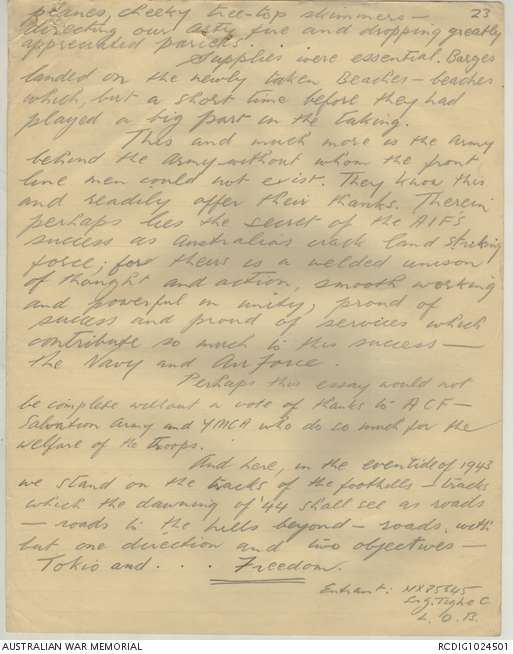 23
planes, cheeky tree-top skimmers –
directing our arty fire and dropping greatly
appreciated parcels.
Supplies were essential. Barges
landed on the newly taken Beaches – beaches
which, but a short time before they had
played a big part in the taking.
This and much more is the Army
behind the Army without whom the front
line men could not exist. They know this
and readily offer their thanks. Therein
perhaps lies the secret of the AIF's
success as Australias crack land striking
force; for theirs is a welded unison
of thought and action, smooth working
and powerful in unity; proud of
success and proud of services which
contribute so much to this success –
the Navy and Air Force.
Perhaps this essay would not
be complete without a vote of thanks to ACF –
Salvation Army and YMCA who do so much for the
welfare of the troops.
And here, in the eventide of 1943
we stand on the tracks of the foothills – tracks
which the dawning of '44 shall see as roads
– roads to the hills beyond – roads, with
but one direction and two objectives –
Tokio and . . . Freedom.
Entrant: NX85645
Sig. Tighe C.
L. O. B.
AUSTRALIAN WAR MEMORIAL
RCDIG1024501